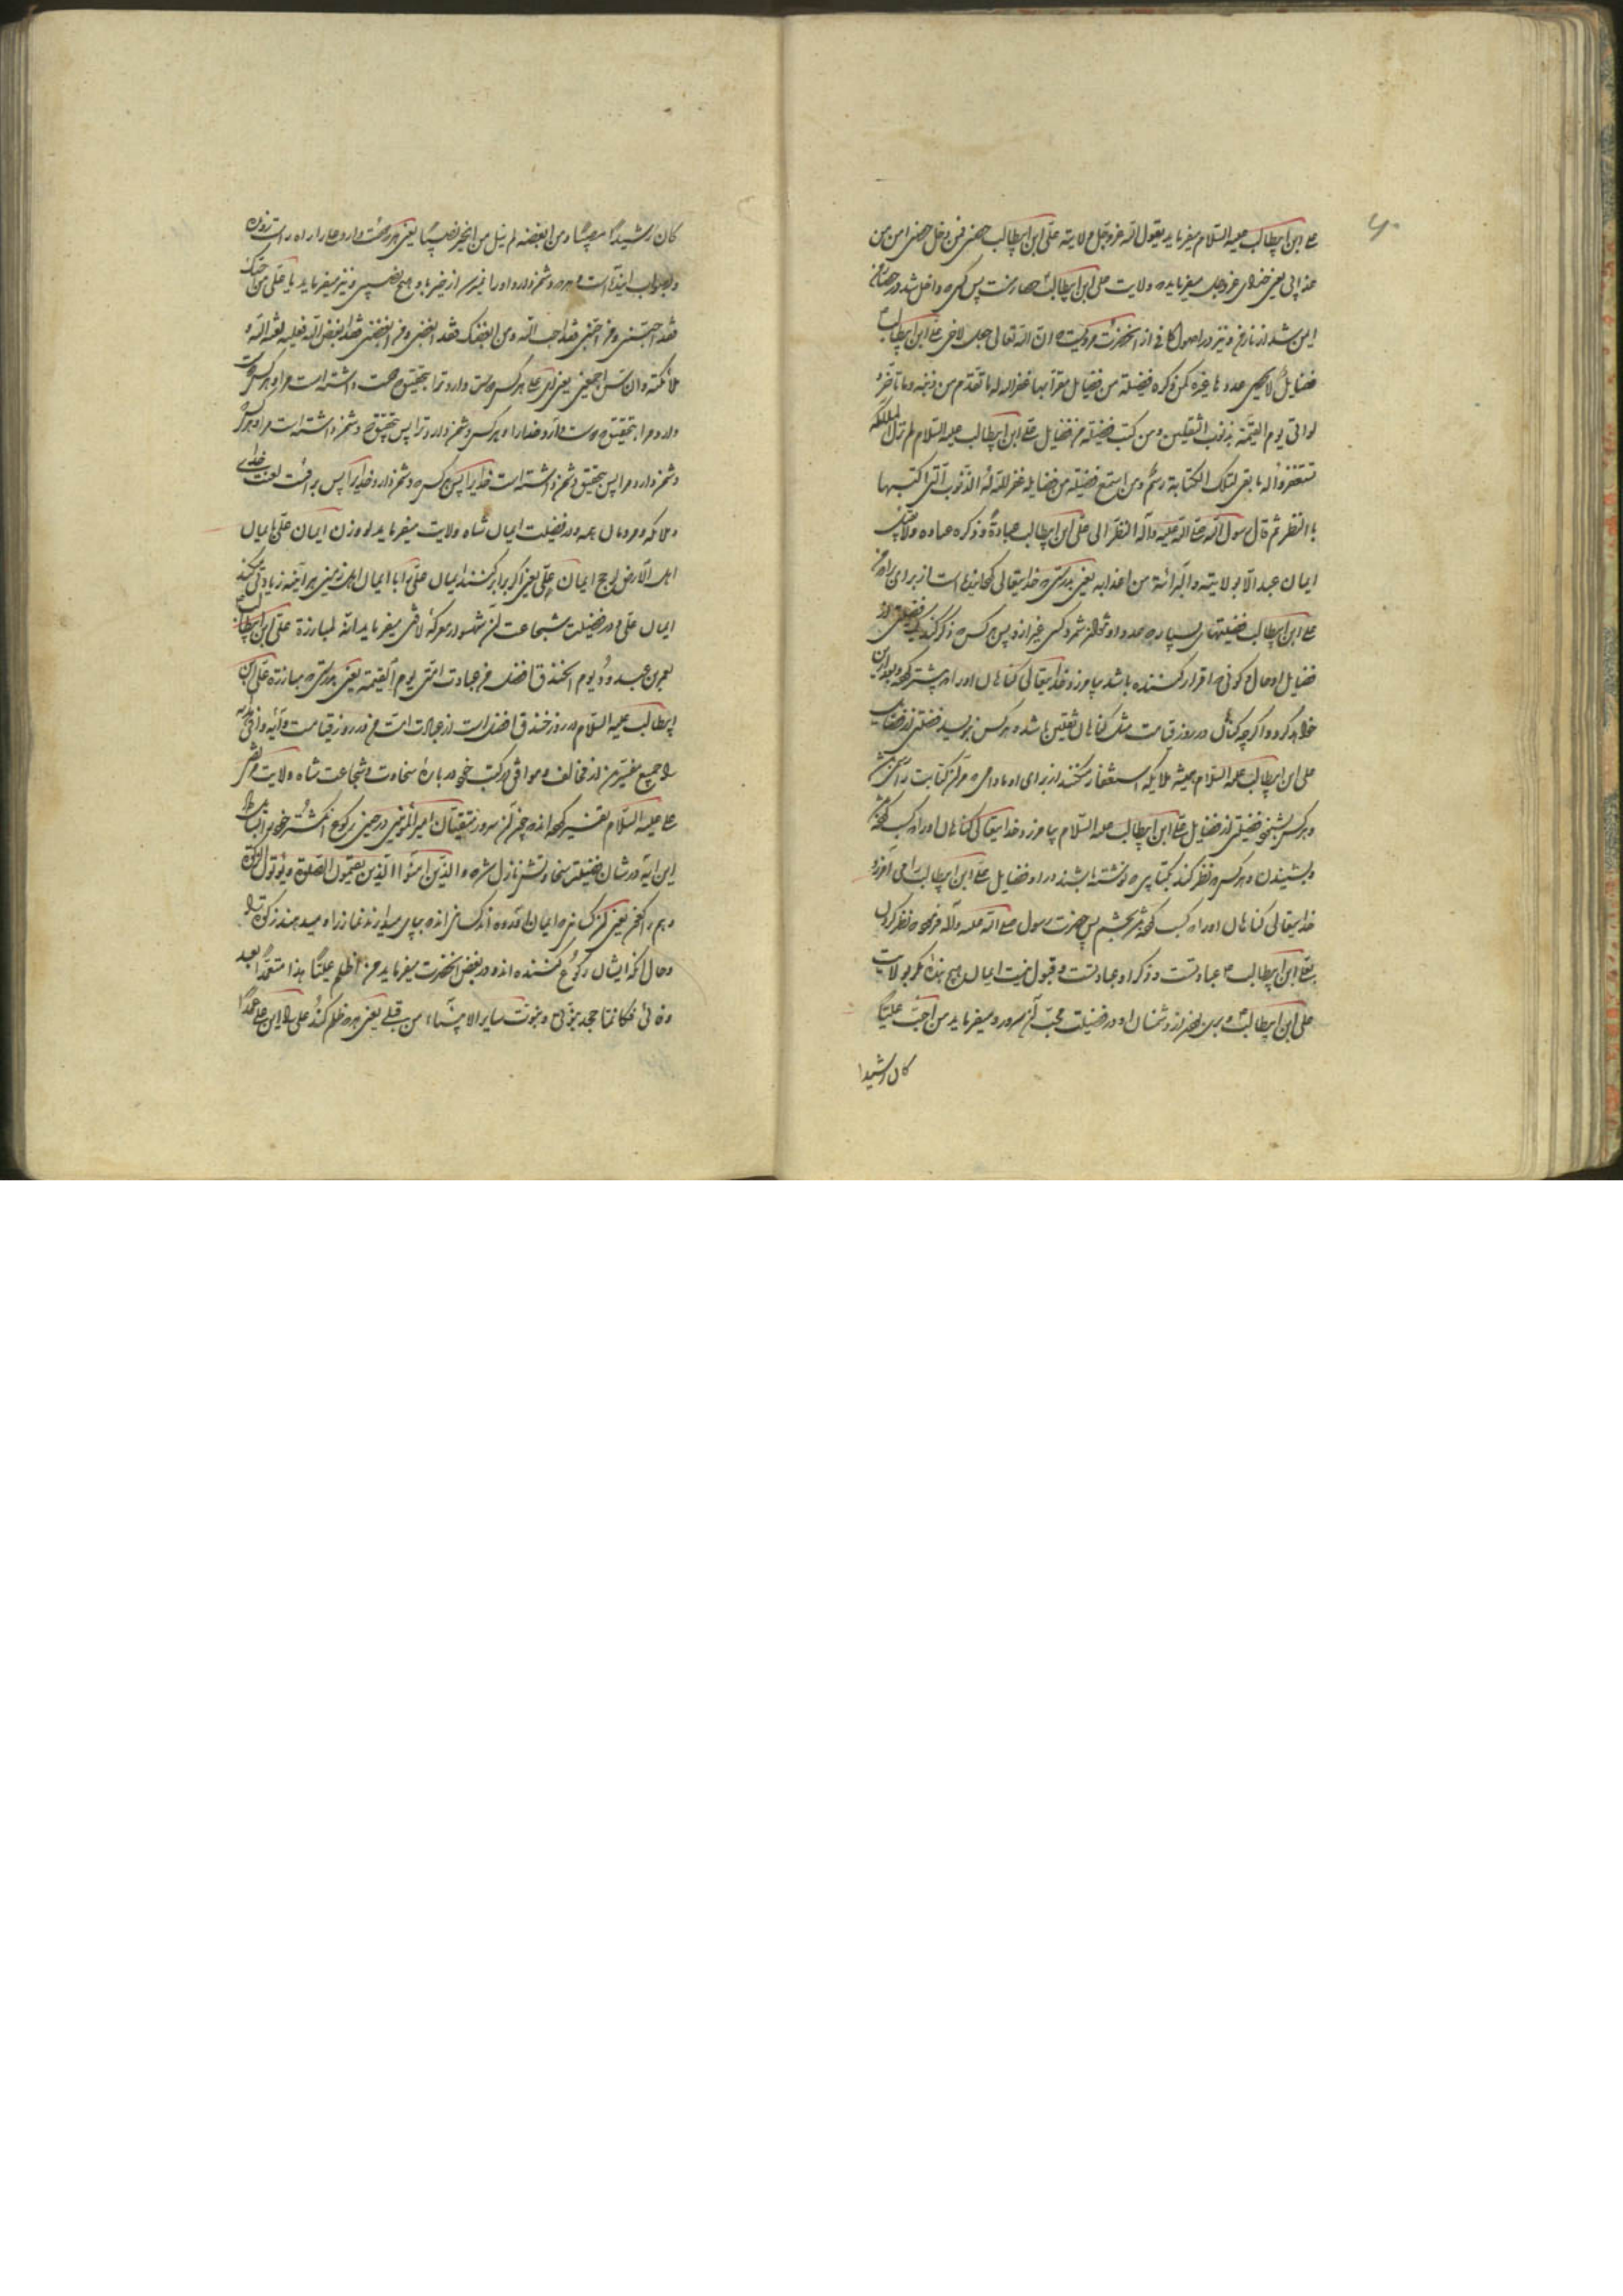 علی ابن ابیطالب علیه السلام میفرماید یقول الله عز و جل ولایة علی ابن ابیطالب حصنی فمن دخل حصنی امن من
عذابی یعنی خدای عز و جل میفرماید که ولایت علی ابن ابیطالب حصار منست پس کسی که داخل شد در حصار من
ایمن شد از نار من و نیز در اصول کافی از آنحضرت مرویست که ان الله تعالی جعل لاخی علی ابن ابیطالب
فضایل لا یحصی عددها غیره فمن ذکره فضیلة من فضایله مقرا بها غفر الله له ما تقدم من ذنبه و ما تأخر و
لو اتی یوم القیمة بذنوب الثقلین و من کتب فضیلة من فضایل علی ابن ابیطالب علیه السلام لم تزل الملائکة
تستغفر له ما بقی لتلک الکتابة رسم و من استمع فضیلة من فضایله غفر الله له الذنوب التی اکتسبها
بالنظر ثم قال رسول الله صلی الله علیه و آله النظر الی علی ابن ابیطالب عبادة و ذکره عباده و لا یقبل
ایمان عبد الا بولایته و البرائة من اعدائه یعنی بدرستی که خدایتعالی گردانیده است از برای برادر من
علی ابن ابیطالب فضیلتهای بسیار که عدد او نتواند شمرد کسی غیر از و پس هر کس که ذکر کند یک فضیلتی از
فضایل او حال کونی که اقرار کننده باشد بیامرزد خدایتعالی گناهان او را که پیشتر کرده و بعد ازین
خواهد کرد و اگرچه گناهش در روز قیامت مثل گناهان ثقلین باشد و هر کس بنویسد فضیلتی از فضایل
علی ابن ابیطالب علیه السلام همیشه ملایکه استغفار میکنند از برای او مادامی که مر آن کتابت را
و هر کس بشنود فضیلتی از فضایل علی ابن ابیطالب علیه السلام بیامرزد خدایتعالی گناهان او را که کسب کرده
بشنیدن و هر کس که نظر کند بکتابی که نوشته باشند در او فضایل علی ابن ابیطالب را می آمرزد
خدایتعالی گناهان او را که کسب کرده بچشم پس حضرت رسول صلی الله علیه و آله فرمود که نظر کردن
بعلی ابن ابیطالب عبادتست و ذکر او عبادتست و قبول نیست ایمان هیچ بنده مگر بولایت
علی ابن ابیطالب و بری بودن از دشمنان او و در فضیلت محب آن سرور میفرماید من احب علیا
کان رشیدا
کان رشیدا مصیبا و من ابغضه لم ینل من الخیر نصیبا یعنی هر که دوست دارد علی را راه راست
هر که دشمن دارد او را نمیرسد از خیر باو هیچ نصیبی و نیز میفرماید یا علی من احبک
فقد احبنی و من احبنی فقد احب الله و من ابغضک فقد ابغضنی و من ابغضنی فقد ابغض الله فعلیه لعنة الله و
ملائکته و الناس اجمعین یعنی ای علی هر کس که دوست دارد ترا بتحقیق که دوست داشته است مرا و هر کس دوست
دارد مرا بتحقیق که دوست دارد خدا را و هر کس دشمن دارد ترا پس بتحقیق که دشمن داشته است مرا و هر کس
دشمن دارد مرا پس بتحقیق دشمن داشته است خدایرا پس هر کس که دشمن دارد خدایرا پس بر اوست لعنت خدای
و ملائکه و مردمان همه و در فضیلت ایمان شاه ولایت میفرماید لو وزن ایمان علی بایمان
اهل الارض لرجح ایمان علی یعنی اگر برابر کنند ایمان علی را با ایمان اهل زمین هر آینه زیادتی کند
ایمان علی و در فضیلت شجاعت آن شهسوار معرکه لافتی میفرماید انه لمبارزة علی ابن ابیطالب
بعمر بن عبد ود یوم الخندق افضل من عبادت امتی یوم القیمة یعنی بدرستی که مبارزه علی ابن
ابیطالب علیه السلام در روز خندق افضل است از عبادت امت من در روز قیامت و آیه وافی هدایه
را جمیع مفسرین از مخالف و موافق در کتب خود در باره سخاوت و شجاعت شاه ولایت
علی علیه السلام تفسیر کرده اند چون آن سرور متقیان امیر المؤمنین در حین رکوع انگشتر خود را
این آیه در شان فضیلت سخاوتش نازل شد و الذین امنوا الذین یقیمون الصلوة و یؤتون الزکوة
و هم راکعون یعنی آن کسانی که ایمان آورده اند کسانی اند که بپای میدارند نماز را و میدهند زکوة را
و حال آنکه ایشان رکوع کننده اند و در بغض آنحضرت میفرماید من اظلم علیا هذا متعمدا بعد
وفاتی فکانما جحد بنبوتی و نبوت سایر الانبیاء من قبلی یعنی هر که ظلم کند علی را